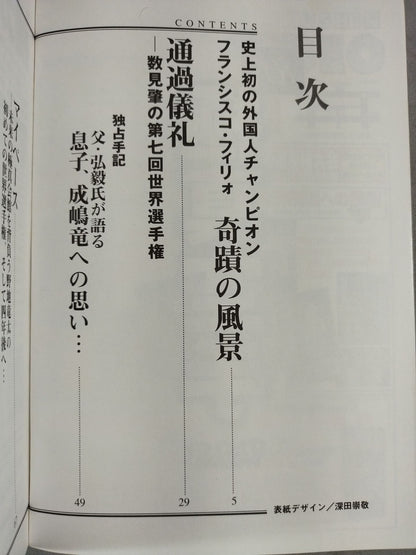 CONTENTS
目次
史上初の外国人チャンピオン
フランシスコ・フィリォ 奇蹟の風景
5
通過儀礼
―数見肇の第七回世界選手権
29
独占手記
父・弘毅氏が語る
息子、成嶋竜への思い…
49
マイペース
初めての世界選手権、そして四年後へ…
表紙デザイン／深田崇敬